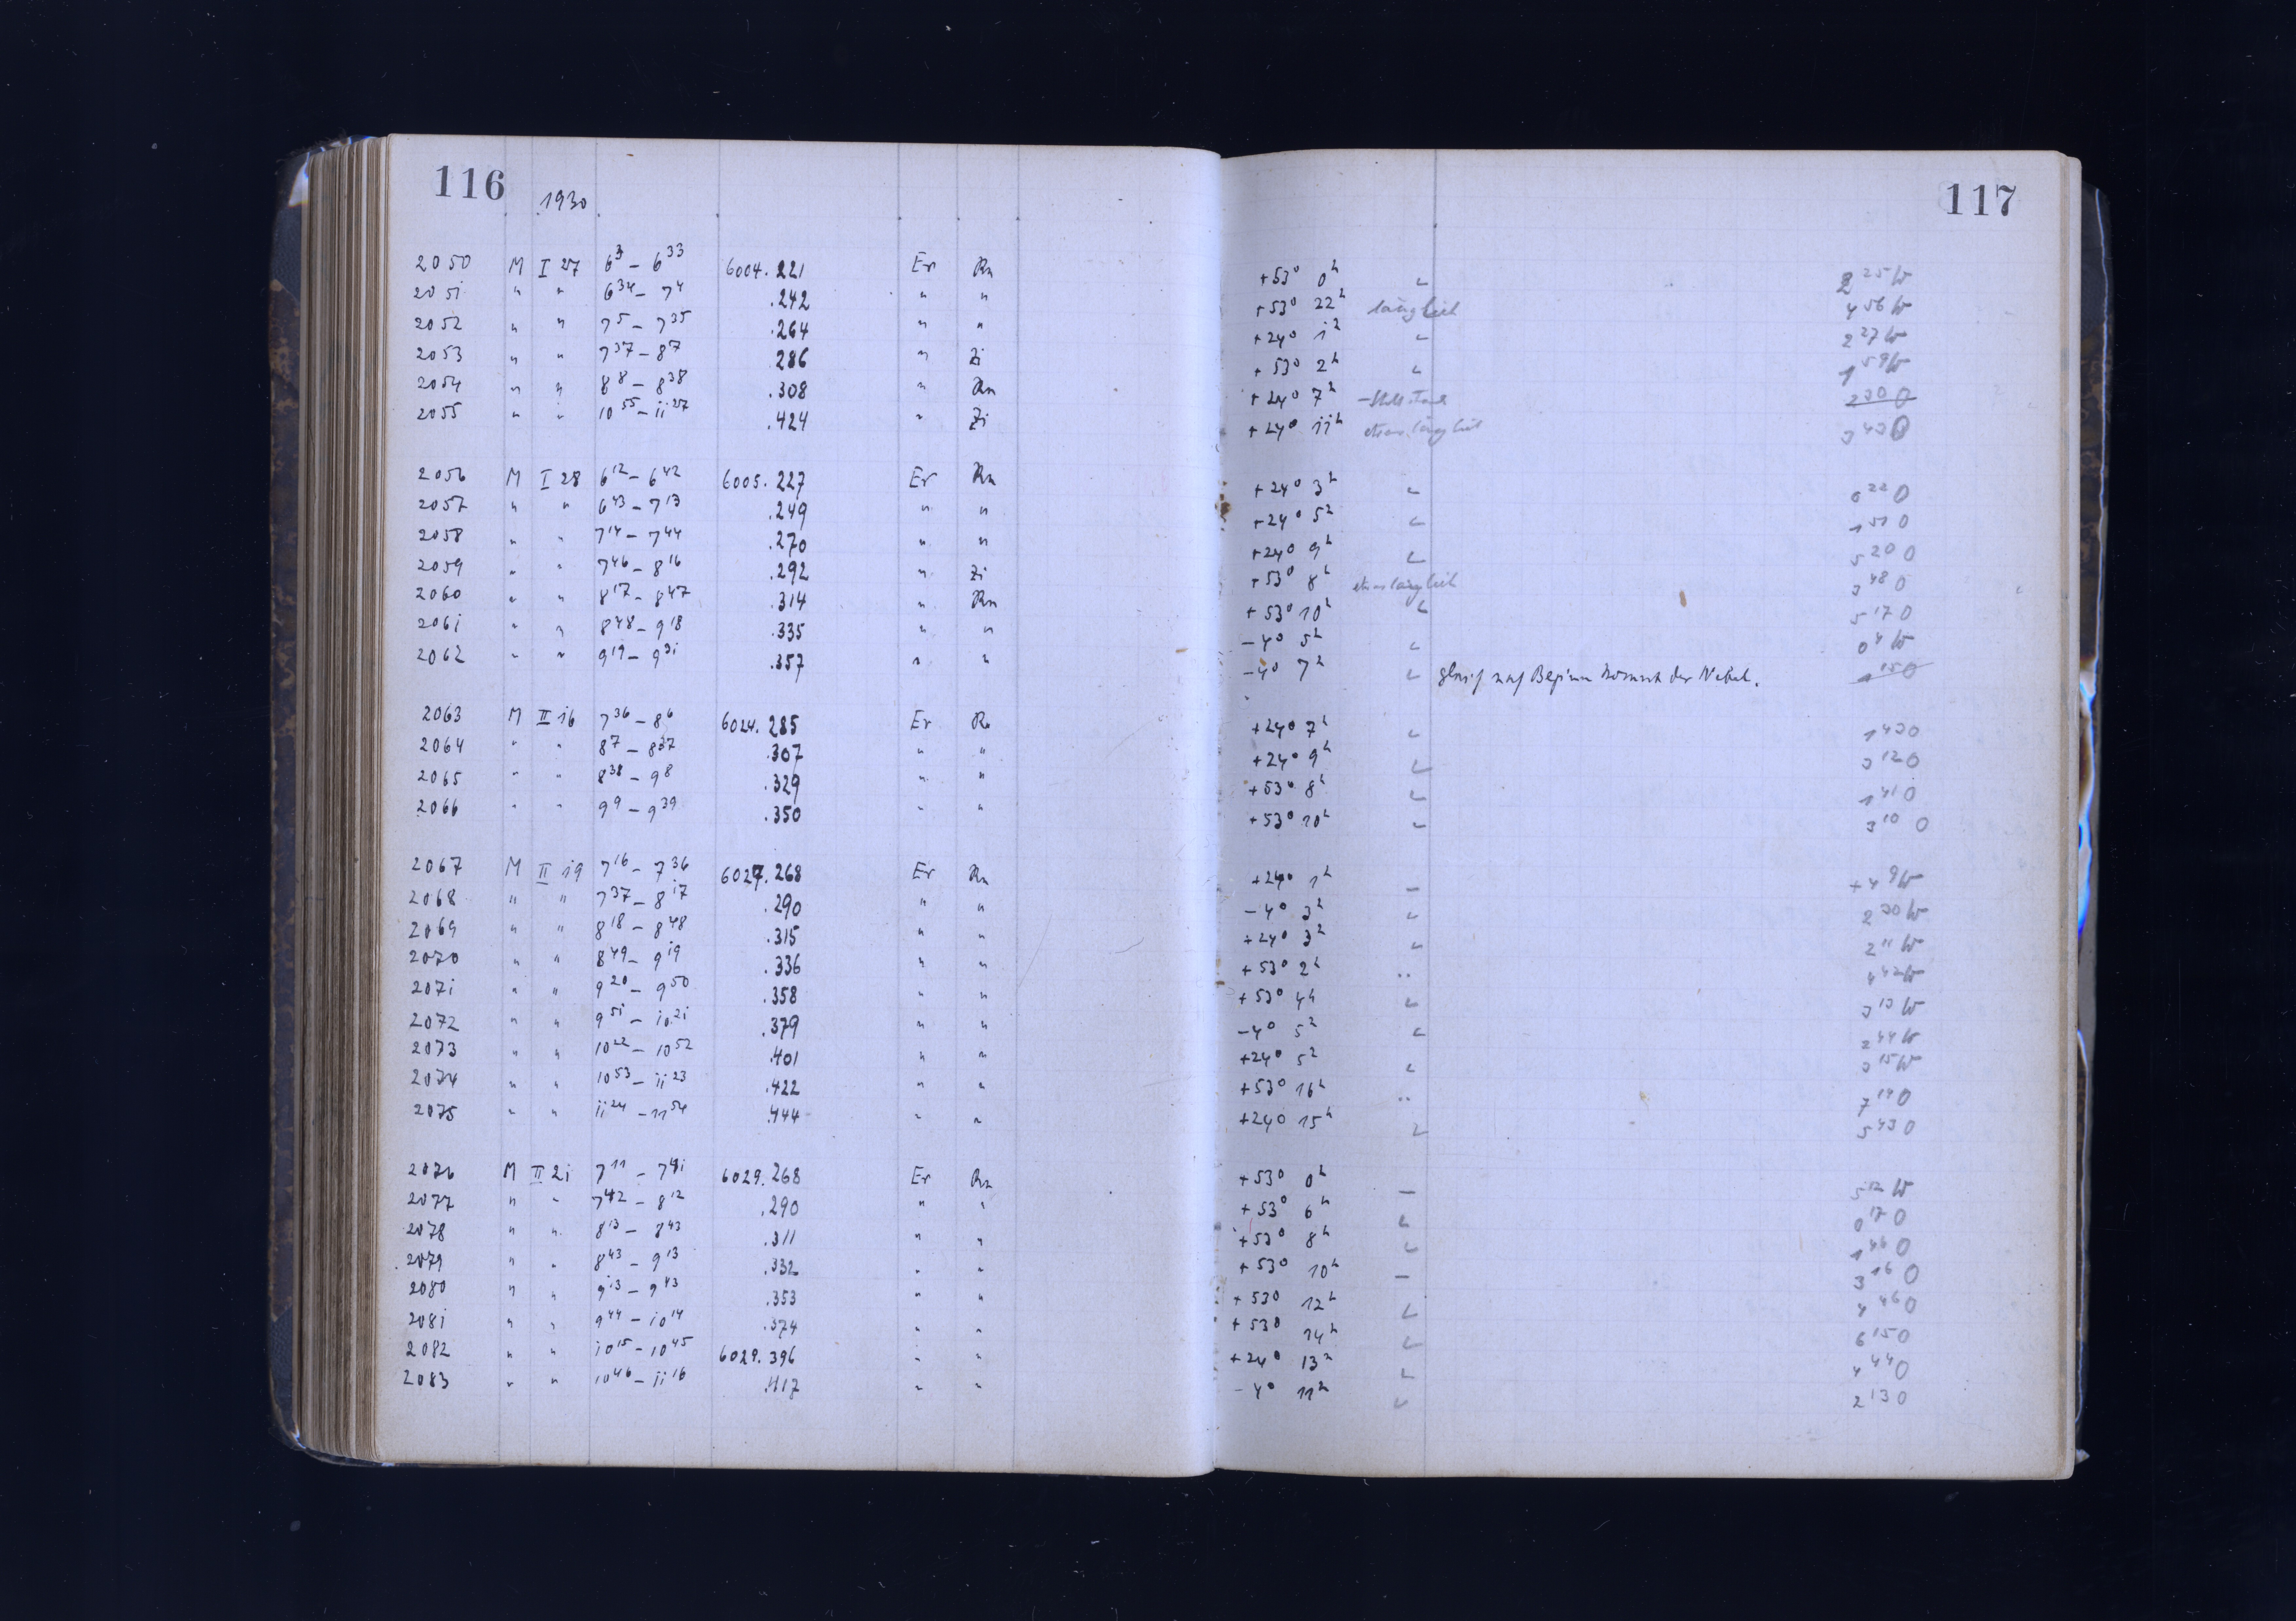 116
1930
2050 M I 27 6³ – 6³³ 6004.221 Er Rn
2051 " " 6³⁴ – 7⁴ .242 " "
2052 " " 7⁵ – 7³⁵ .264 " "
2053 " " 7³⁷ – 8⁷ .286 " Zi
2054 " " 8⁸ – 8³⁸ .308 " Rn
2055 " " 10⁵⁵ – 11²⁷ .424 " Zi
2056 M I 28 6¹² – 6⁴² 6005.227 Er Rn
2057 " " 6⁴³ – 7¹³ .249 " "
2058 " " 7¹⁴ – 7⁴⁴ .270 " "
2059 " " 7⁴⁶ – 8¹⁶ .292 " Zi
2060 " " 8¹⁷ – 8⁴⁷ .314 " Rn
2061 " " 8⁴⁸ – 9¹⁸ .335 " "
2062 " " 9¹⁹ – 9³¹ .357 " "
2063 M II 16 7³⁶ – 8⁶ 6024.285 Er Rn
2064 " " 8⁷ – 8³⁷ .307 " "
2065 " " 8³⁸ – 9⁸ .329 " "
2066 " " 9⁹ – 9³⁹ .350 " "
2067 M II 19 7¹⁶ – 7³⁶ 6027.268 Er Rn
2068 " " 7³⁷ – 8¹⁷ .290 " "
2069 " " 8¹⁸ – 8⁴⁸ .315 " "
2070 " " 8⁴⁹ – 9¹⁹ .336 " "
2071 " " 9²⁰ – 9⁵⁰ .358 " "
2072 " " 9⁵¹ – 10²¹ .379 " "
2073 " " 10²² – 10⁵² .401 " "
2074 " " 10⁵³ – 11²³ .422 " "
2075 " " 11²⁴ – 11⁵⁴ .444 " "
2076 M II 21 7¹¹ – 7⁴¹ 6029.268 Er Rn
2077 " " 7⁴² – 8¹² .290 " "
2078 " " 8¹³ – 8⁴³ .311 " "
2079 " " 8⁴³ – 9¹³ .332 " "
2080 " " 9¹³ – 9⁴³ .353 " "
2081 " " 9⁴⁴ – 10¹⁴ .374 " "
2082 " " 10¹⁵ – 10⁴⁵ 6029.396 " "
2083 " " 10⁴⁶ – 11¹⁶ .417 " "
117
+53° 0ʰ 2²⁵ W
+53° 22ʰ länglich 4⁵⁶ W
+24° 1ʰ 2²⁷ W
+53° 2ʰ 1⁵⁹ W
+24° 7ʰ 2³⁰ O
+24° 11ʰ etwas länglich 3⁴³ O
+24° 3ʰ 0²² O
+24° 5ʰ 1⁵¹ O
+24° 9ʰ 5²⁰ O
+53° 8ʰ etwas länglich 3⁴⁸ O
+53° 10ʰ 5¹⁷ O
–4° 5ʰ 0⁴ W
–4° 7ʰ gleich nach Beginn kommt der Nebel. 1¹⁵ O
+24° 7ʰ 1⁴³ O
+24° 9ʰ 3¹² O
+53° 8ʰ 1⁴¹ O
+53° 10ʰ 3¹⁰ O
+24° 1ʰ – +4⁹ W
–4° 3ʰ 2³⁰ W
+24° 3ʰ 2¹¹ W
+53° 2ʰ 4⁴² W
+53° 4ʰ 3¹³ W
–4° 5ʰ 2⁴⁴ W
+24° 5ʰ 3¹⁵ W
+53° 16ʰ 7¹⁹ O
+24° 15ʰ 5⁴³ O
+53° 0ʰ – 5¹² W
+53° 6ʰ 0¹⁷ O
+53° 8ʰ 1⁴⁶ O
+53° 10ʰ – 3¹⁶ O
+53° 12ʰ 4⁴⁶ O
+53° 14ʰ 6¹⁵ O
+24° 13ʰ 4⁴⁴ O
–4° 11ʰ 2¹³ O